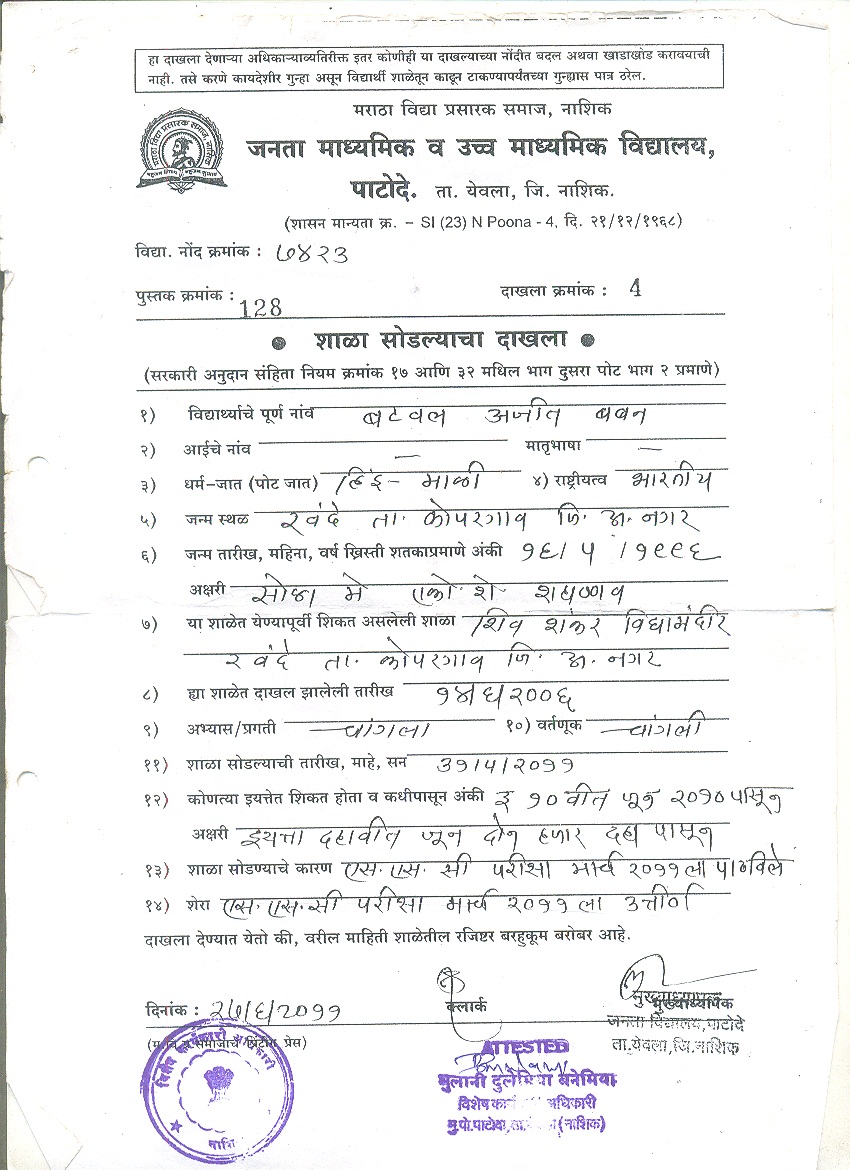 हा दाखला देणाऱ्या अधिकाऱ्याव्यतिरीक्त इतर कोणीही या दाखल्याच्या नोंदीत बदल अथवा खाडाखोड करावयाची
नाही. तसे करणे कायदेशीर गुन्हा असून विद्यार्थी शाळेतून काढून टाकण्यापर्यंतच्या गुन्ह्यास पात्र ठरेल.
मराठा विद्या प्रसारक समाज, नाशिक
जनता माध्यमिक व उच्च माध्यमिक विद्यालय,
पाटोदे. ता. येवला, जि. नाशिक.
(शासन मान्यता क्र. – SI (23) N Poona - 4, दि. २१/१२/१९६८)
विद्या. नोंद क्रमांक : ७४२३
पुस्तक क्रमांक : 128 दाखला क्रमांक : 4
● शाळा सोडल्याचा दाखला ●
(सरकारी अनुदान संहिता नियम क्रमांक १७ आणि ३२ मधिल भाग दुसरा पोट भाग २ प्रमाणे)
१) विद्यार्थ्याचे पूर्ण नांव बटवल अजीत बबन
२) आईचे नांव — मातृभाषा —
३) धर्म-जात (पोट जात) हिंदू - माळी ४) राष्ट्रीयत्व भारतीय
५) जन्म स्थळ रवंदे ता. कोपरगाव जि. अ. नगर
६) जन्म तारीख, महिना, वर्ष ख्रिस्ती शतकाप्रमाणे अंकी १६/५/१९९६
अक्षरी सोळा मे एकोणीशे शहाण्णव
७) या शाळेत येण्यापूर्वी शिकत असलेली शाळा शिव शंकर विद्यामंदीर
रवंदे ता. कोपरगाव जि. अ. नगर
८) ह्या शाळेत दाखल झालेली तारीख १४/६/२००६
९) अभ्यास/प्रगती चांगला १०) वर्तणूक चांगली
११) शाळा सोडल्याची तारीख, माहे, सन ३१/५/२०११
१२) कोणत्या इयत्तेत शिकत होता व कधीपासून अंकी इ १० वीत जून २०१० पासून
अक्षरी इयत्ता दहावीत जून दोन हजार दहा पासून
१३) शाळा सोडण्याचे कारण एस.एस.सी परीक्षा मार्च २०११ ला पाठविले
१४) शेरा एस.एस.सी परीक्षा मार्च २०११ ला उत्तीर्ण
दाखला देण्यात येतो की, वरील माहिती शाळेतील रजिष्टर बरहुकूम बरोबर आहे.
दिनांक : २७/६/२०११ क्लार्क मुख्याध्यापक
जनता विद्यालय,पाटोदे
ता.येवला,जि.नाशिक
(म.वि.प्र.समाजाचे प्रिंटींग प्रेस)
ATTESTED
मुलानी दुलेमिया बनेमिया
विशेष कार्य अधिकारी
मु.पो.पाटोदा,ता. (नाशिक)